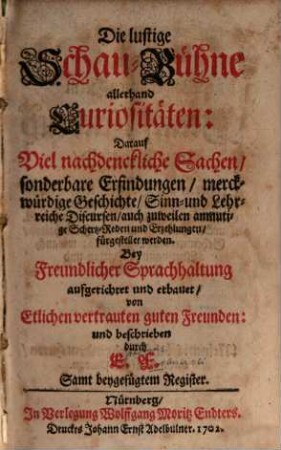 Die lustige
Schau-Bühne
allerhand
Curiositäten:
Darauf
Viel nachdenckliche Sachen/
sonderbare Erfindungen / merck-
würdige Geschichte/ Sinn-und Lehr-
reiche Discursen/auch zuweilen anmuti-
ge Schertz-Reden und Erzehlungen/
fürgestellet werden.
Bey
Freundlicher Sprachhaltung
aufgerichtet und erbauet/
von
Etlichen vertrauten guten Freunden:
und beschrieben
durch
E. F.
Samt beygefügtem Register.
Nürnberg/
In Verlegung Wolffgang Moritz Endters.
Druckts Johann Ernst Adelbulner. 1702.